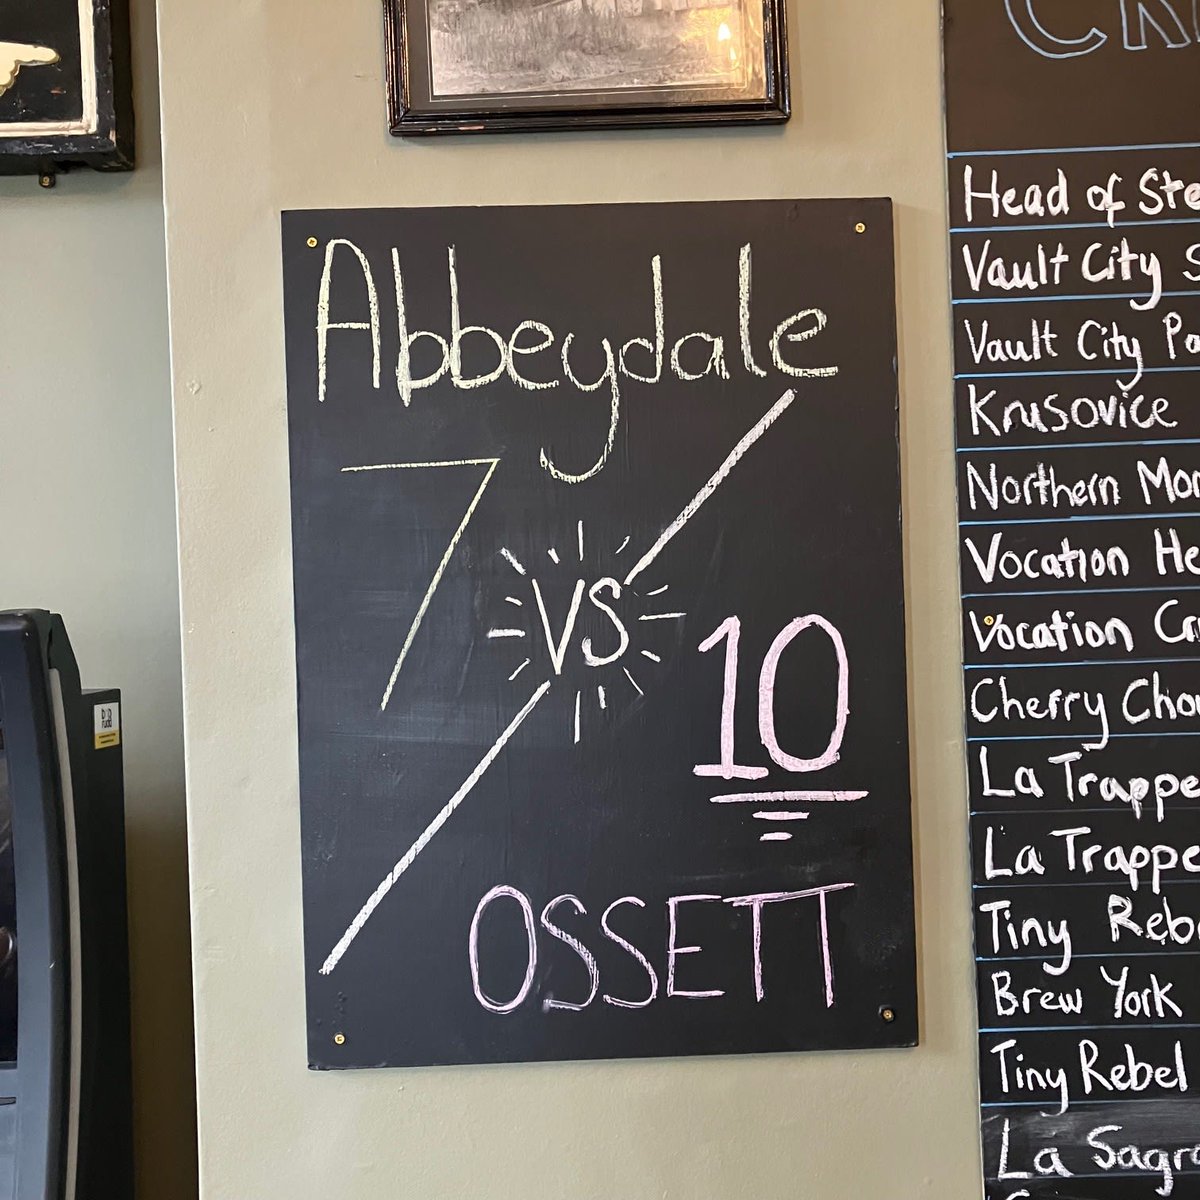 Abbeydale
7
VS
10
OSSETT
Head of
Vault City
Vault City
Krusovice
Northern
Vocation
Vocation
Cherry
La Trappe
La Trappe
Tiny
Brew York
Tiny Rebel
La